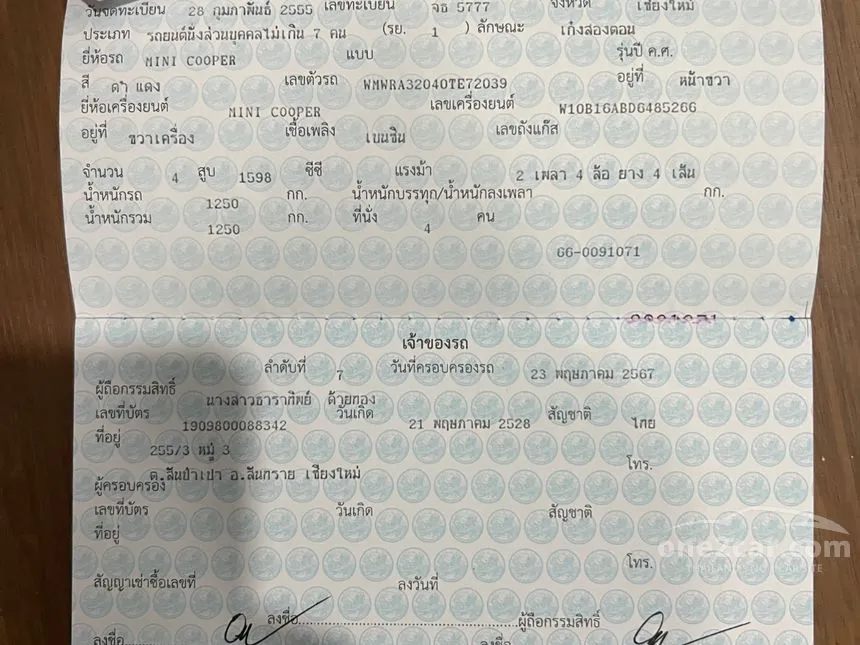 วันจดทะเบียน 28 กุมภาพันธ์ 2555 เลขทะเบียน จธ 5777 จังหวัด เชียงใหม่
ประเภท รถยนต์นั่งส่วนบุคคลไม่เกิน 7 คน (รย. 1 ) ลักษณะ เก๋งสองตอน
ยี่ห้อรถ MINI COOPER แบบ รุ่นปี ค.ศ.
สี ดำ แดง เลขตัวรถ WMWRA32040TE72039 อยู่ที่ หน้าขวา
ยี่ห้อเครื่องยนต์ MINI COOPER เลขเครื่องยนต์ W10B16ABD6485266
อยู่ที่ ขวาเครื่อง เชื้อเพลิง เบนซิน เลขถังแก๊ส
จำนวน 4 สูบ 1598 ซีซี แรงม้า 2 เพลา 4 ล้อ ยาง 4 เส้น
น้ำหนักรถ 1250 กก. น้ำหนักบรรทุก/น้ำหนักลงเพลา กก.
น้ำหนักรวม 1250 กก. ที่นั่ง 4 คน
66-0091071
เจ้าของรถ
ลำดับที่ 7 วันที่ครอบครองรถ 23 พฤษภาคม 2567
ผู้ถือกรรมสิทธิ์ นางสาวธาราทิพย์ ด้ายทอง
เลขที่บัตร 1909800088342 วันเกิด 21 พฤษภาคม 2528 สัญชาติ ไทย
ที่อยู่ 255/3 หมู่ 3
ต.สันป่าเปา อ.สันทราย เชียงใหม่ โทร.
ผู้ครอบครอง
เลขที่บัตร วันเกิด สัญชาติ
ที่อยู่
โทร.
one2car.com
สัญญาเช่าซื้อเลขที่ ลงวันที่
ลงชื่อ ผู้ถือกรรมสิทธิ์
ลงชื่อ ลงชื่อ